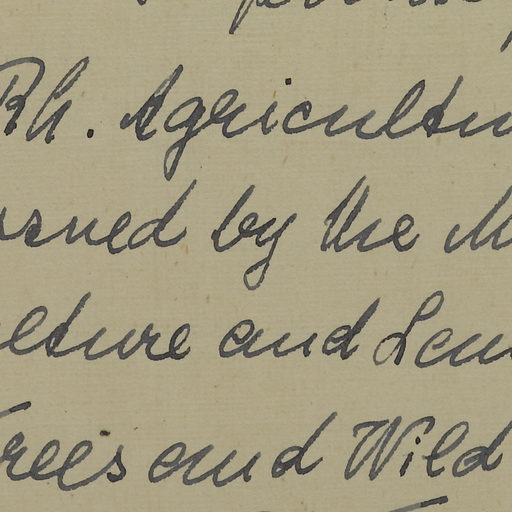 Rh. Agricultu
rned by the M
lture and Lan
rees and Wild